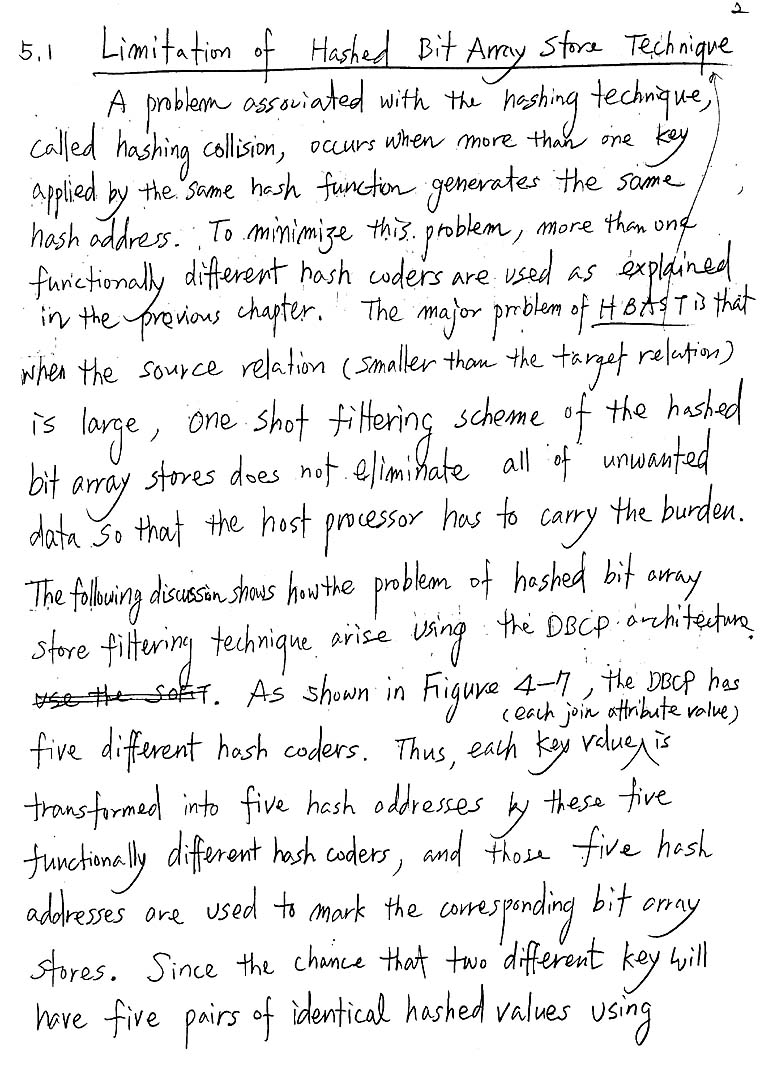 2
5.1 Limitation of Hashed Bit Array Store Technique
A problem associated with the hashing technique,
called hashing collision, occurs when more than one key
applied by the same hash function generates the same
hash address. To minimize this problem, more than one
functionally different hash coders are used as explained
in the previous chapter. The major problem of HBAST is that
when the source relation (smaller than the target relation)
is large, one shot filtering scheme of the hashed
bit array stores does not eliminate all of unwanted
data so that the host processor has to carry the burden.
The following discussion shows how the problem of hashed bit array
store filtering technique arise using the DBCP architecture.
use the SOFT. As shown in Figure 4-7, the DBCP has
(each join attribute value)
five different hash coders. Thus, each key value is
transformed into five hash addresses by these five
functionally different hash coders, and those five hash
addresses are used to mark the corresponding bit array
stores. Since the chance that two different key will
have five pairs of identical hashed values using